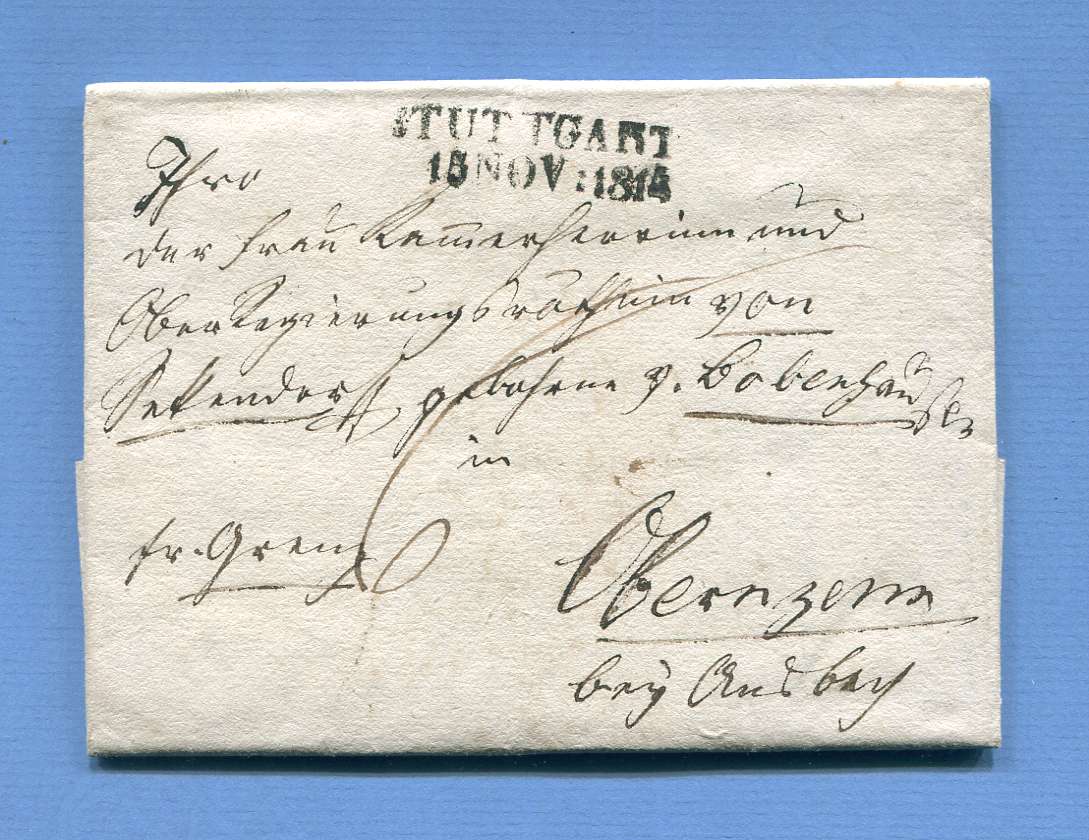 STUTTGART
15 NOV: 1814
Ihro
der Frau Kam̅erherrinn und
Ober Regierungsräthinn von
Sekendorff gebohrne v. Bobenhausen
in
fr. Grenz
Obernzenn
bey Ansbach